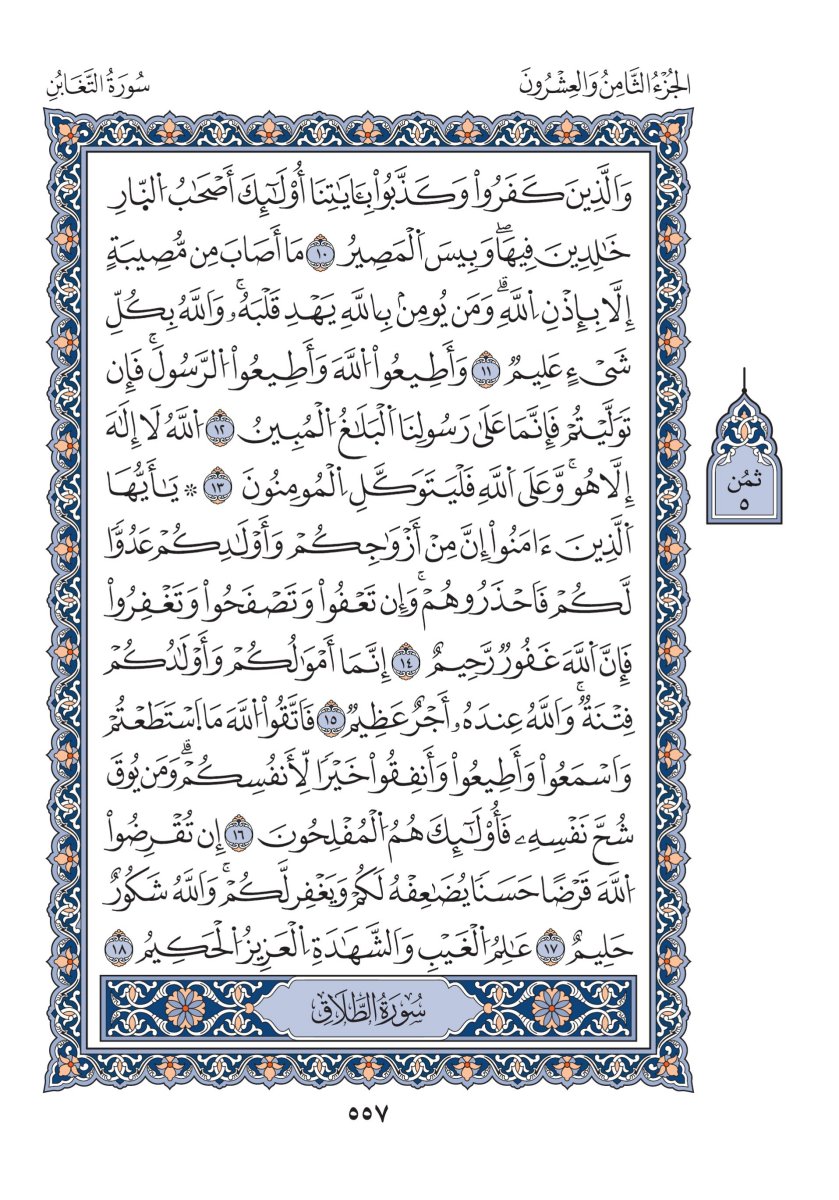 الجُزْءُ الثَّامِنُ وَالعِشْرُونَ
سُورَةُ التَّغَابُنِ
وَالَّذِينَ كَفَرُواْ وَكَذَّبُواْ بِـَٔايَٰتِنَا أُوْلَٰٓئِكَ أَصْحَٰبُ اُ۬لنّ۪ارِ
خَٰلِدِينَ فِيهَاۖ وَبِيسَ اَ۬لْمَصِيرُ ١٠ مَا أَصَابَ مِن مُّصِيبَةٍ
إِلَّا بِإِذْنِ اِ۬للَّهِۗ وَمَن يُومِنۢ بِاللَّهِ يَهْدِ قَلْبَهُۥۚ وَاَللَّهُ بِكُلِّ
شَےْءٍ عَلِيمٌ ١١ وَأَطِيعُواْ اُ۬للَّهَ وَأَطِيعُواْ اُ۬لرَّسُولَۚ فَإِن
تَوَلَّيْتُمْ فَإِنَّمَا عَلَىٰ رَسُولِنَا اَ۬لْبَلَٰغُ اُ۬لْمُبِينُ ١٢ اَ۬للَّهُ لَا إِلَٰهَ
إِلَّا هُوَۚ وَعَلَى اَ۬للَّهِ فَلْيَتَوَكَّلِ اِ۬لْمُومِنُونَ ١٣ ۞ يَٰأَيُّهَا
اَ۬لَّذِينَ ءَامَنُواْ إِنَّ مِنْ أَزْوَٰجِكُمْ وَأَوْلَٰدِكُمْ عَدُوّٗا
لَّكُمْ فَاحْذَرُوهُمْۚ وَإِن تَعْفُواْ وَتَصْفَحُواْ وَتَغْفِرُواْ
فَإِنَّ اَ۬للَّهَ غَفُورٞ رَّحِيمٌ ١٤ إِنَّمَا أَمْوَٰلُكُمْ وَأَوْلَٰدُكُمْ
فِتْنَةٞۚ وَاَللَّهُ عِندَهُۥ أَجْرٌ عَظِيمٞ ١٥ فَاتَّقُواْ اُ۬للَّهَ مَا اَ۪سْتَطَعْتُمْ
وَاسْمَعُواْ وَأَطِيعُواْ وَأَنفِقُواْ خَيْرٗا لِّأَنفُسِكُمْۗ وَمَن يُوقَ
شُحَّ نَفْسِهِۦ فَأُوْلَٰٓئِكَ هُمُ اُ۬لْمُفْلِحُونَ ١٦ إِن تُقْرِضُواْ
اُ۬للَّهَ قَرْضًا حَسَنٗا يُضَٰعِفْهُ لَكُمْ وَيَغْفِر لَّكُمْۚ وَاَللَّهُ شَكُورٌ
حَلِيمٌ ١٧ عَٰلِمُ اُ۬لْغَيْبِ وَالشَّهَٰدَةِ اِ۬لْعَزِيزُ اُ۬لْحَكِيمُ ١٨
سُورَةُ الطَّلَاقِ
ثمُن
٥
٥٥٧